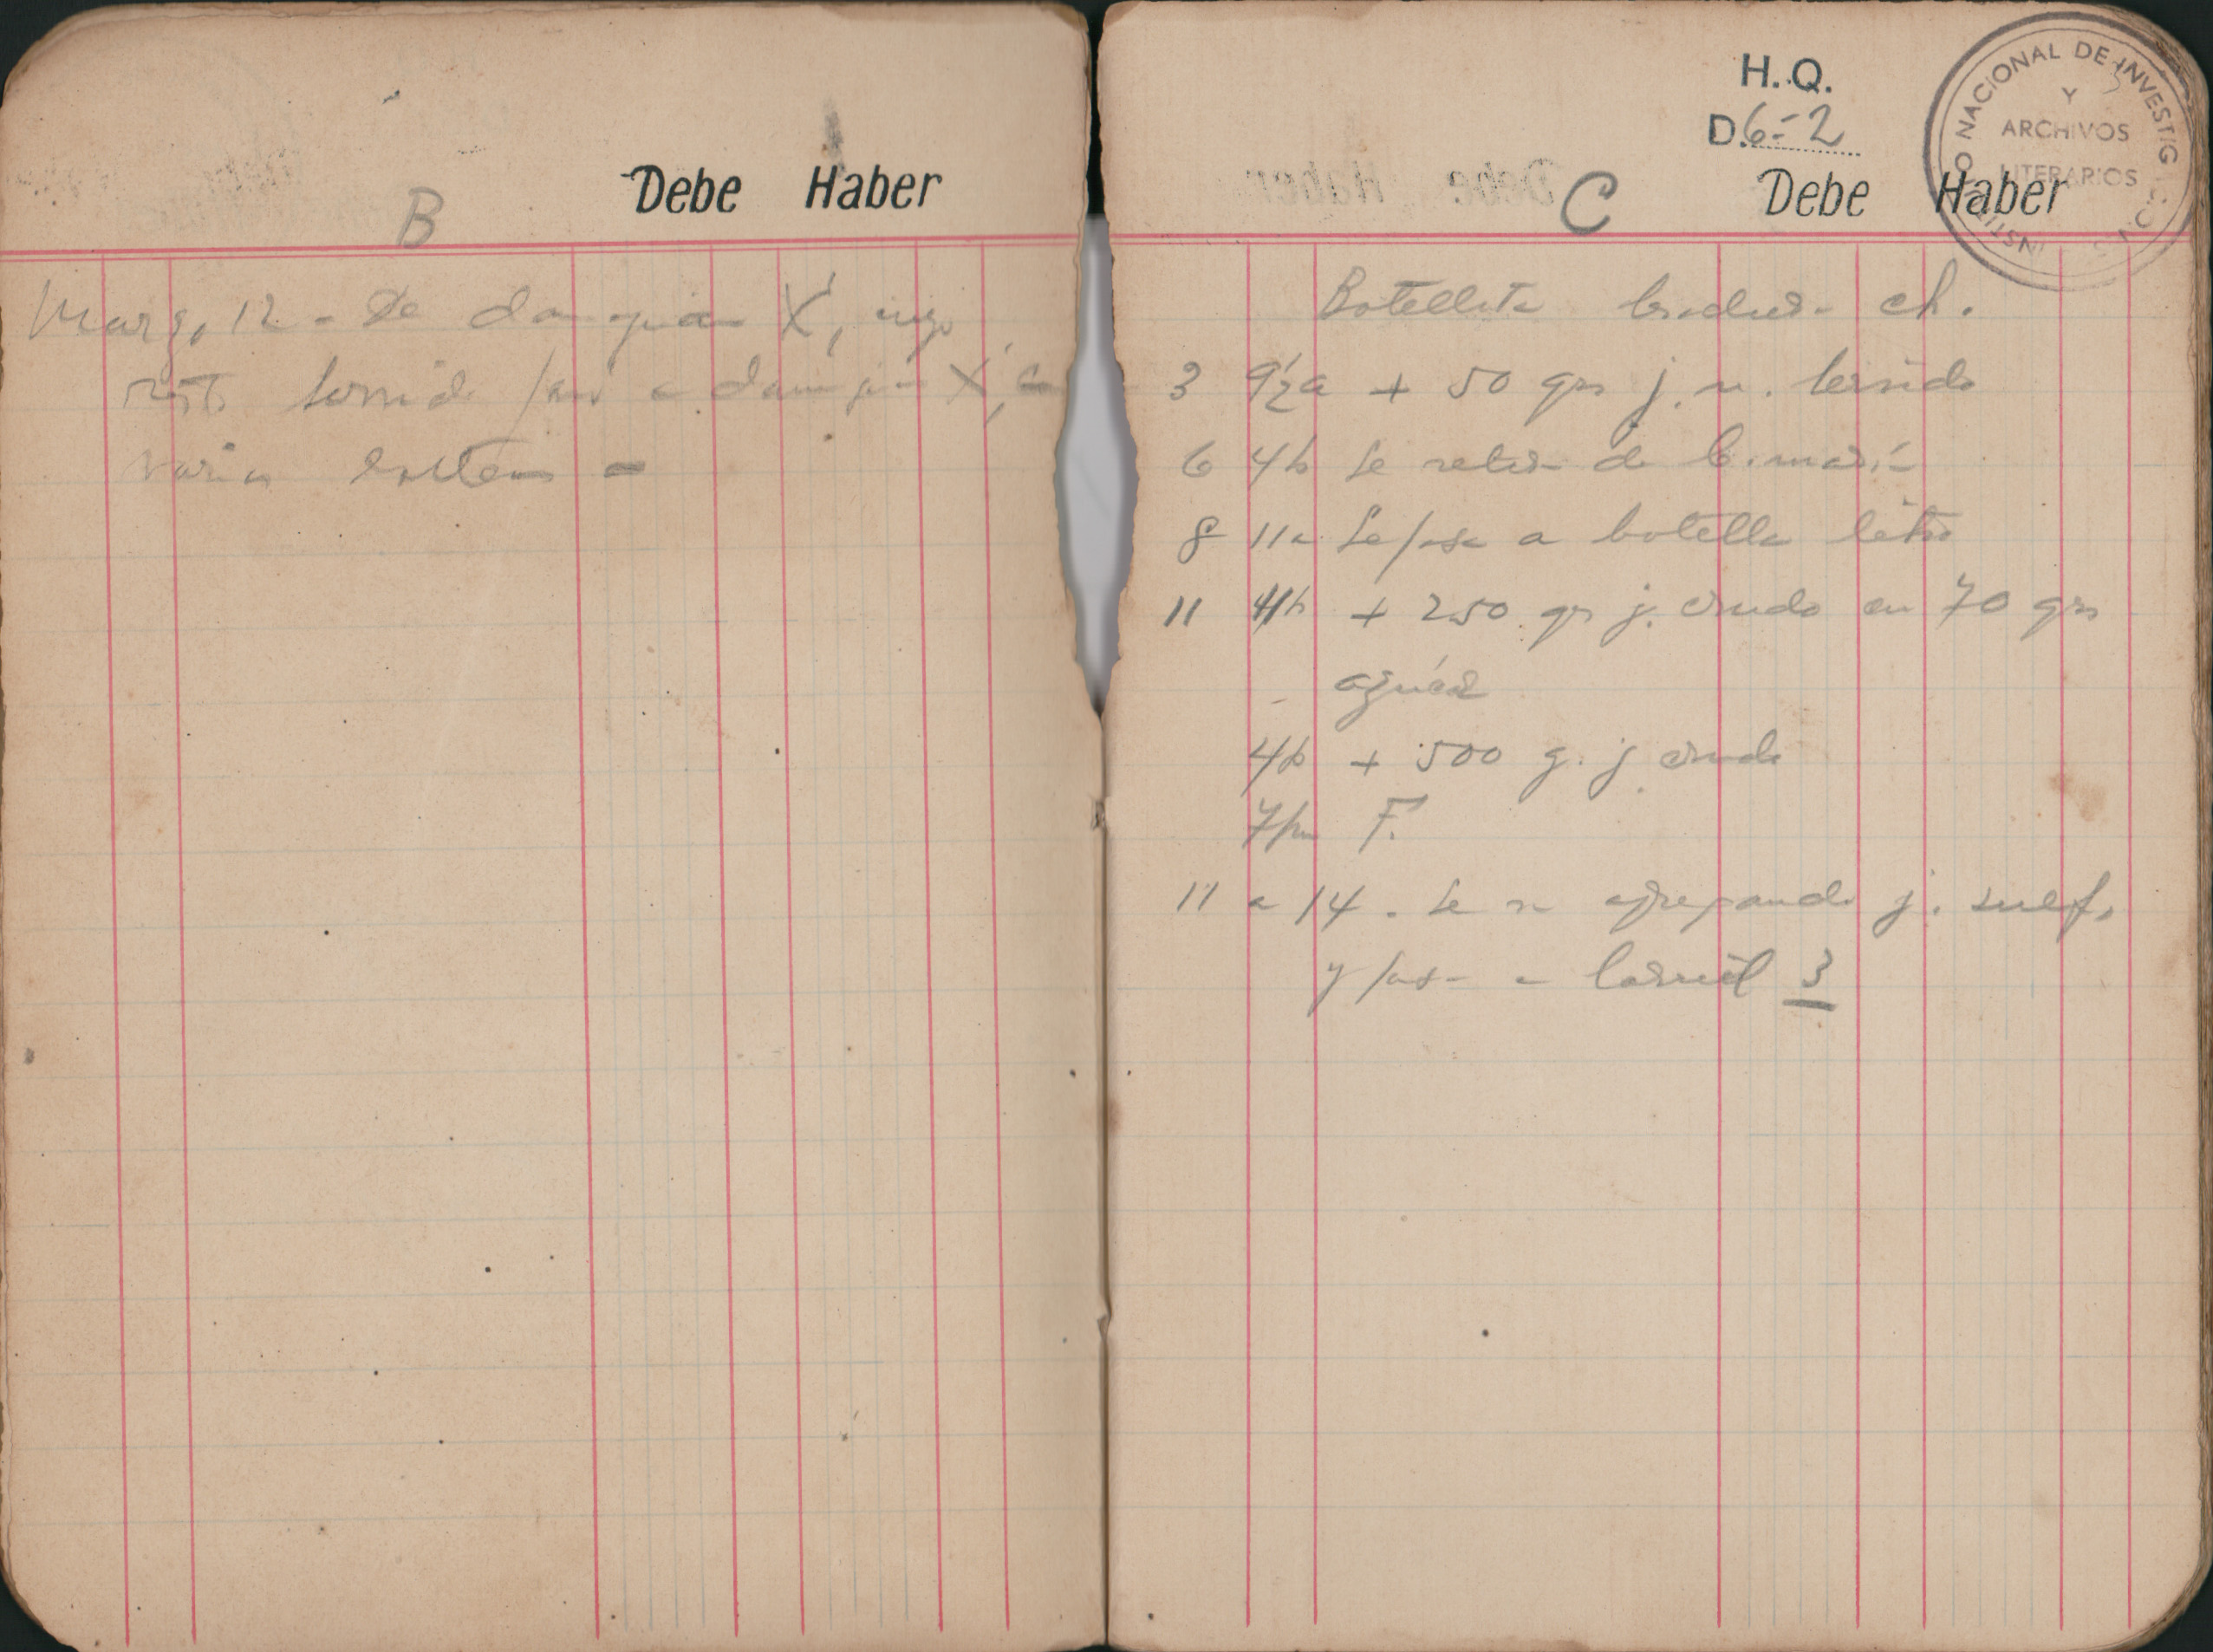 Debe Haber
B
Marzo, 12 - De damajuana X, cuyo
resto hervido pasó a damajuana X,
varias botellas -
H. Q.
D. 6-2
INSTITUTO NACIONAL DE INVESTIG
Y
ARCHIVOS
LITERARIOS
Debe Haber
C
Botellita levadura ch.
3 9½a + 50 grs j. n. hervido
6 4h Se retira de b. maría
8 11a Se pasa a botella litro
11 11h + 250 gr j. crudo en 70 grs
azúcar
4h + 500 g. j crudo
7pm F.
11 a 14. Se va agregando j. sulf,
y pasa a barril 3